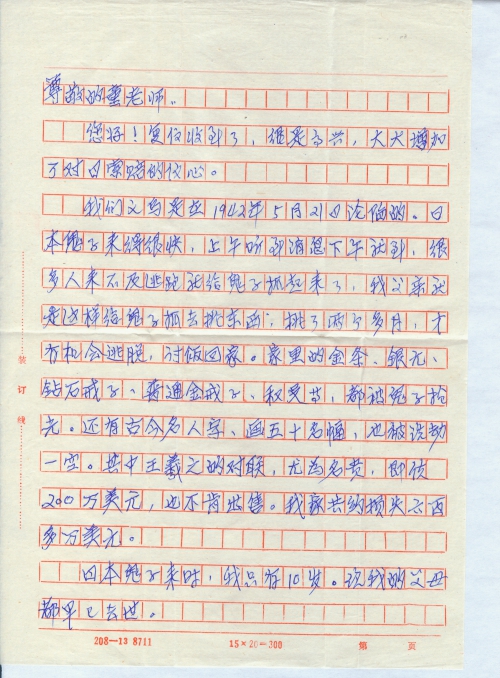 尊敬的童老师.
您好！复信收到了，很是高兴，大大增加
了对日索赔的信心。
我们义乌是在1942年5月21日沦陷的。日
本鬼子来得很快，上午听到消息下午就到，很
多人来不及逃跑就给鬼子抓起来了，我父亲就
是这样给鬼子抓去挑东西，挑了两个多月，才
有机会逃脱，讨饭回家。家里的金条、银元、
钻石戒子、普通金戒子、和 ，都被鬼子抢
光。还有古今名人字、画五十名幅，也被洗劫
一空。其中王羲之的对联，尤为名贵，即使
200万美元，也不肯出售。我家共约损失 百
多万美元。
日本鬼子来时，我只有10岁。现我的父母
都早已去世。
装订线
208—13 8711 15×20=300 第 页